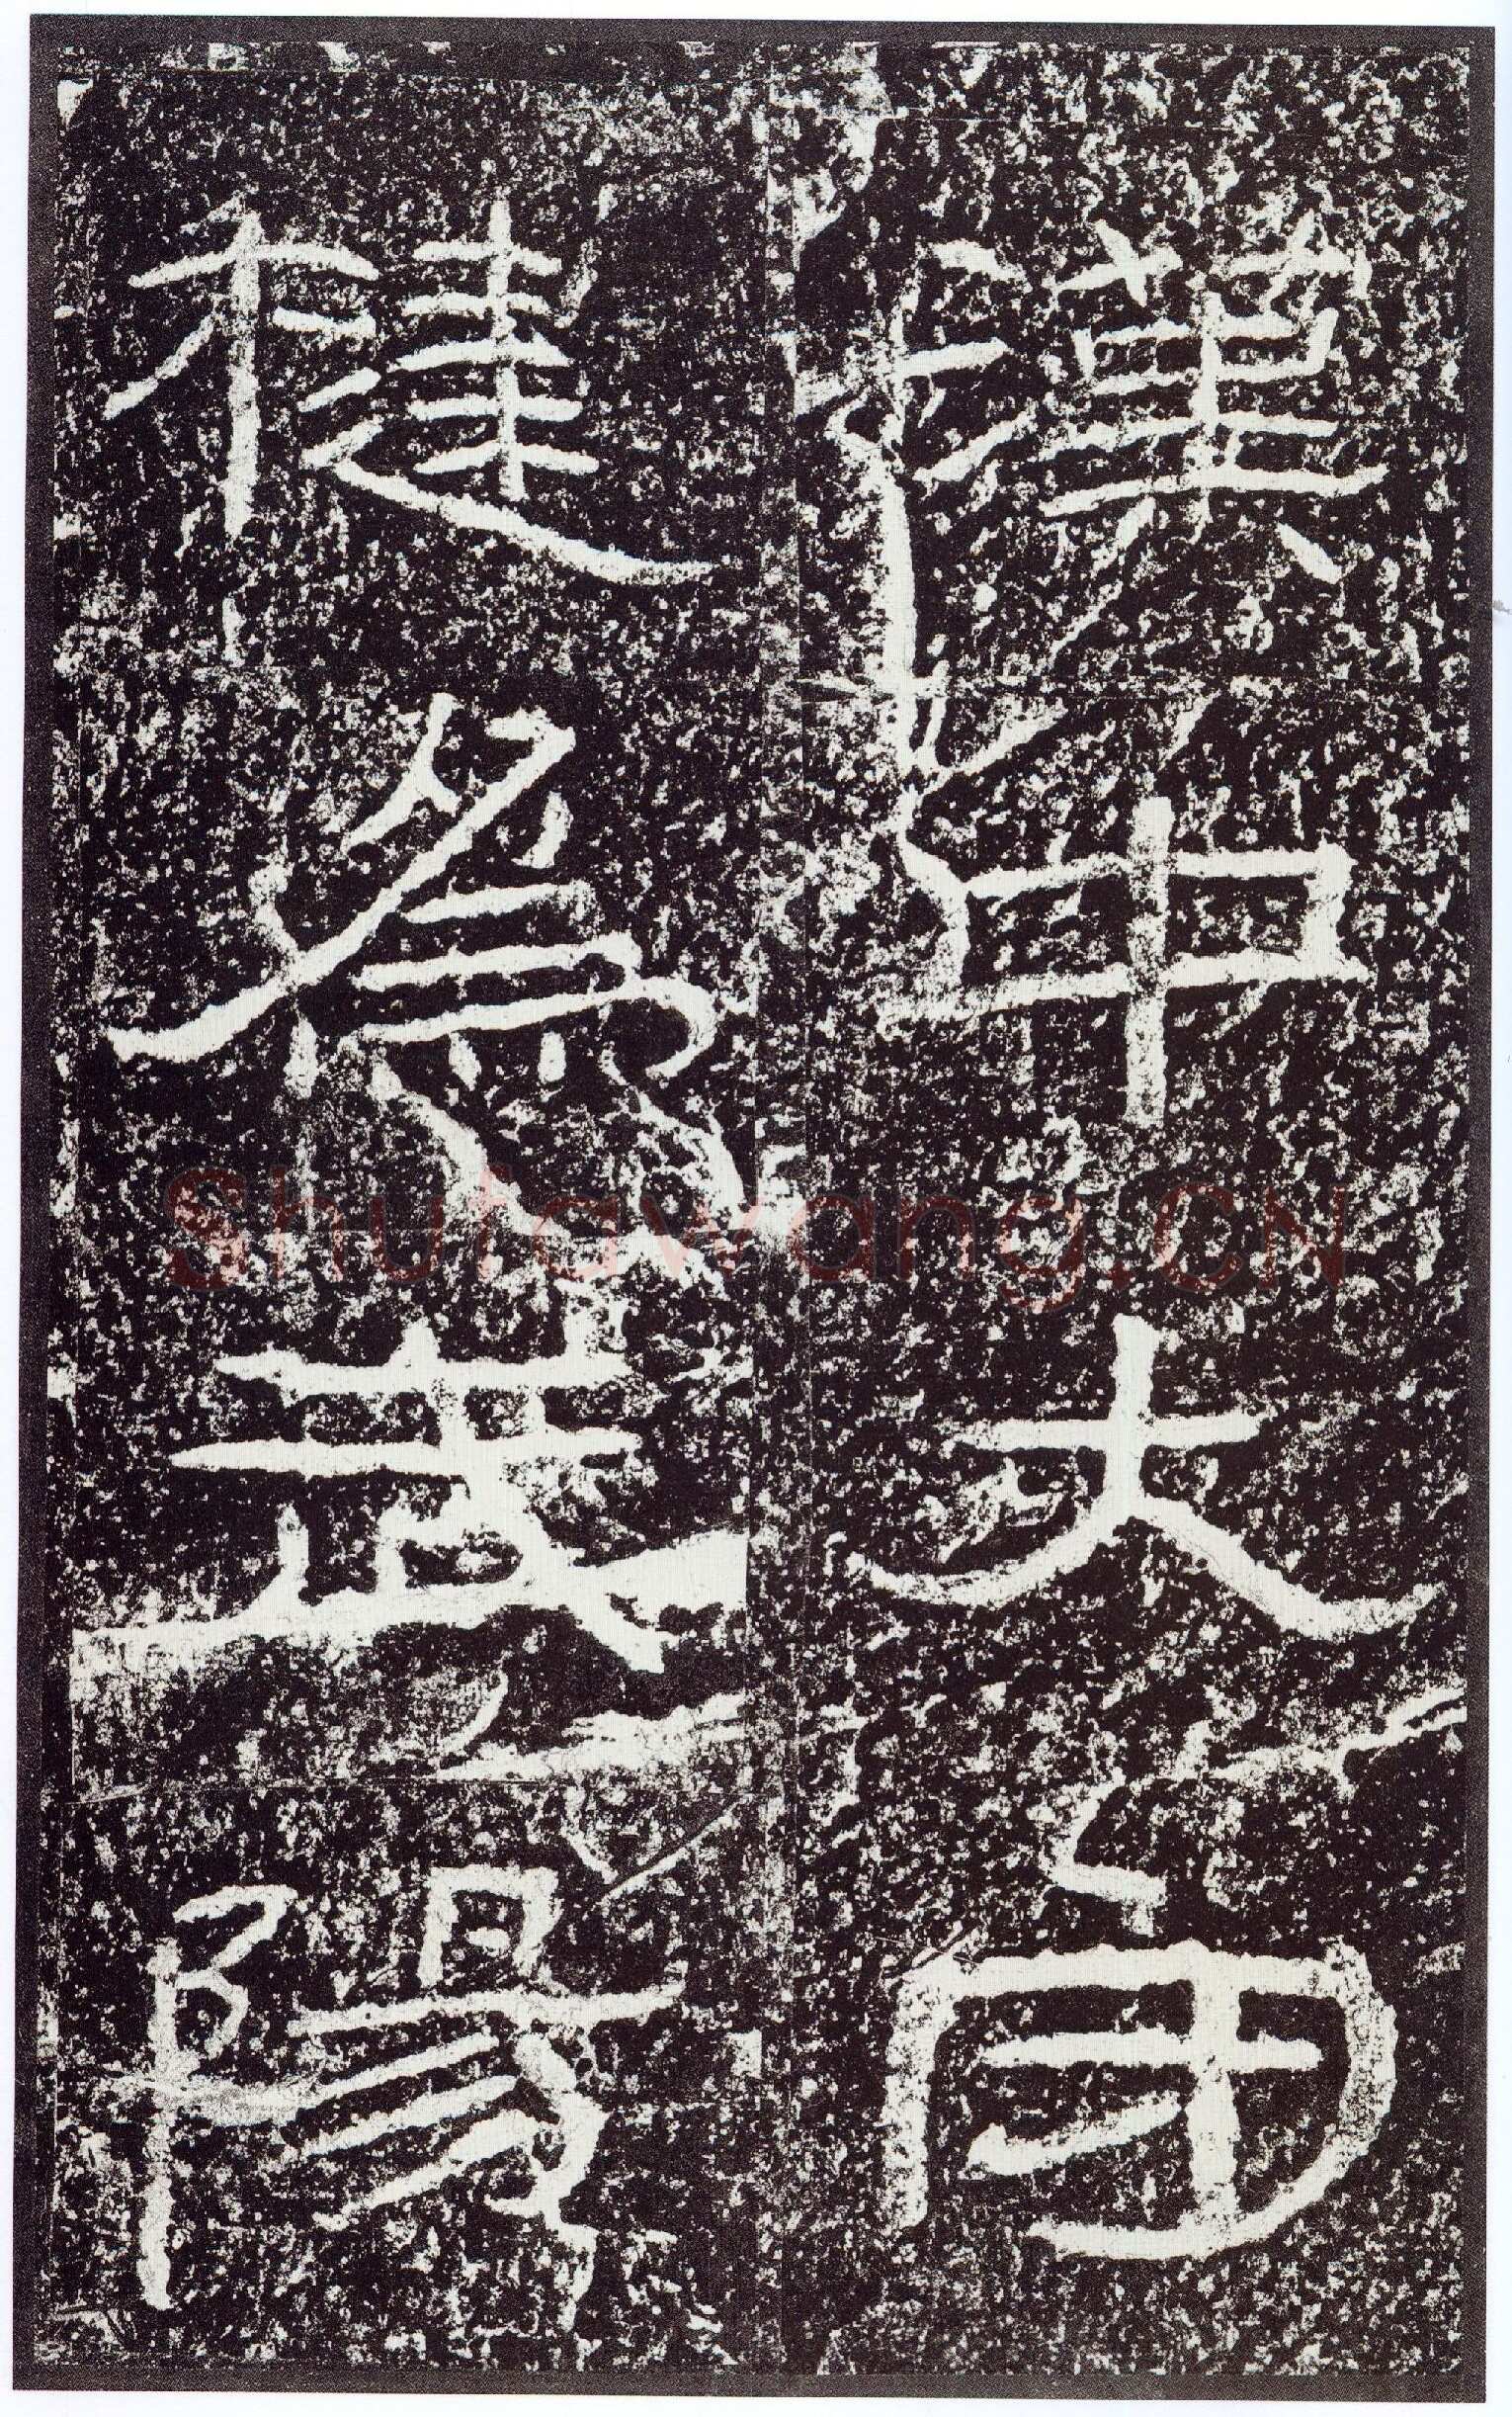 漢中大守
楗為武陽
Shutawang.CN